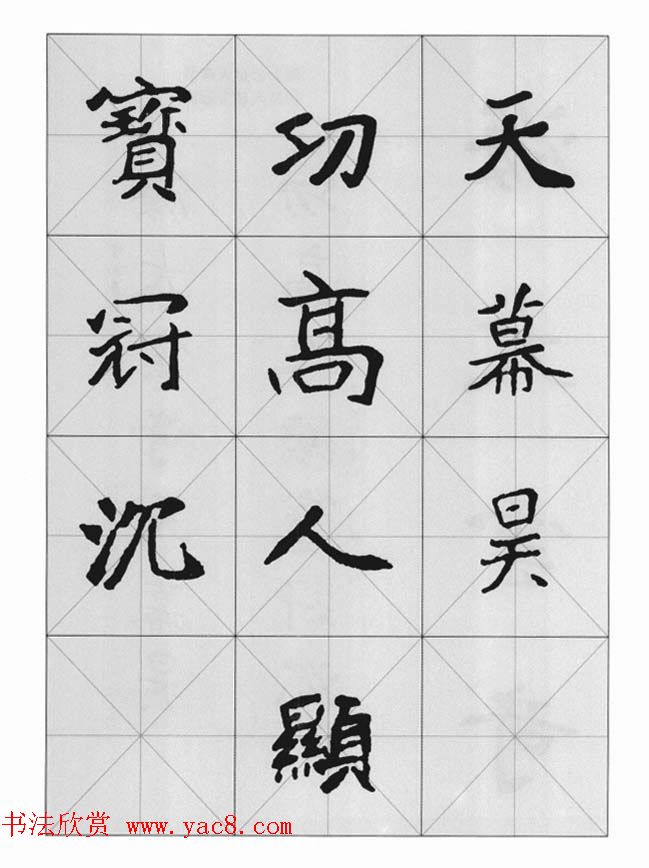 天幕昊
功高人顯
寶冠沉
书法欣赏 www.yac8.com